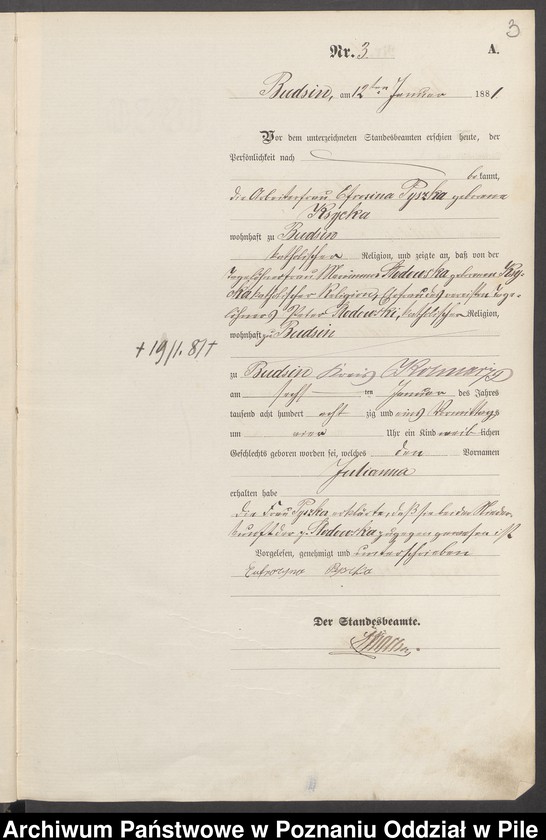 3
Nr. 3 A.
Budsin, am 12ten Januar 1881.
Vor dem unterzeichneten Standesbeamten erschien heute, der
Persönlichkeit nach
bekannt,
die Arbeiterfrau Efrosina Pyszka geborene
Krycka
wohnhaft zu Budsin
katholischer Religion, und zeigte an, daß von der
Tagelöhnerfrau Marianna Stodowska geborenen
katholischer Religion, Ehefrau des
Peter Stodowski, katholischer Religion,
wohnhaft zu Budsin
+ 19/1. 81 +
zu Budsin Kreis Kolmar
am sechsten Januar des Jahres
tausend acht hundert achtzig und eins Vormittags
um vier Uhr ein Kind weiblichen
Geschlechts geboren worden sei, welches den Vornamen
Julianna
erhalten habe
die Frau Pyszka erklärte, daß sie bei der Nieder-
kunft der p. Stodowska zugegen gewesen ist
Vorgelesen, genehmigt und unterschrieben
Eufrozyna Pyszka
Der Standesbeamte.
Archiwum Państwowe w Poznaniu Oddział w Pile